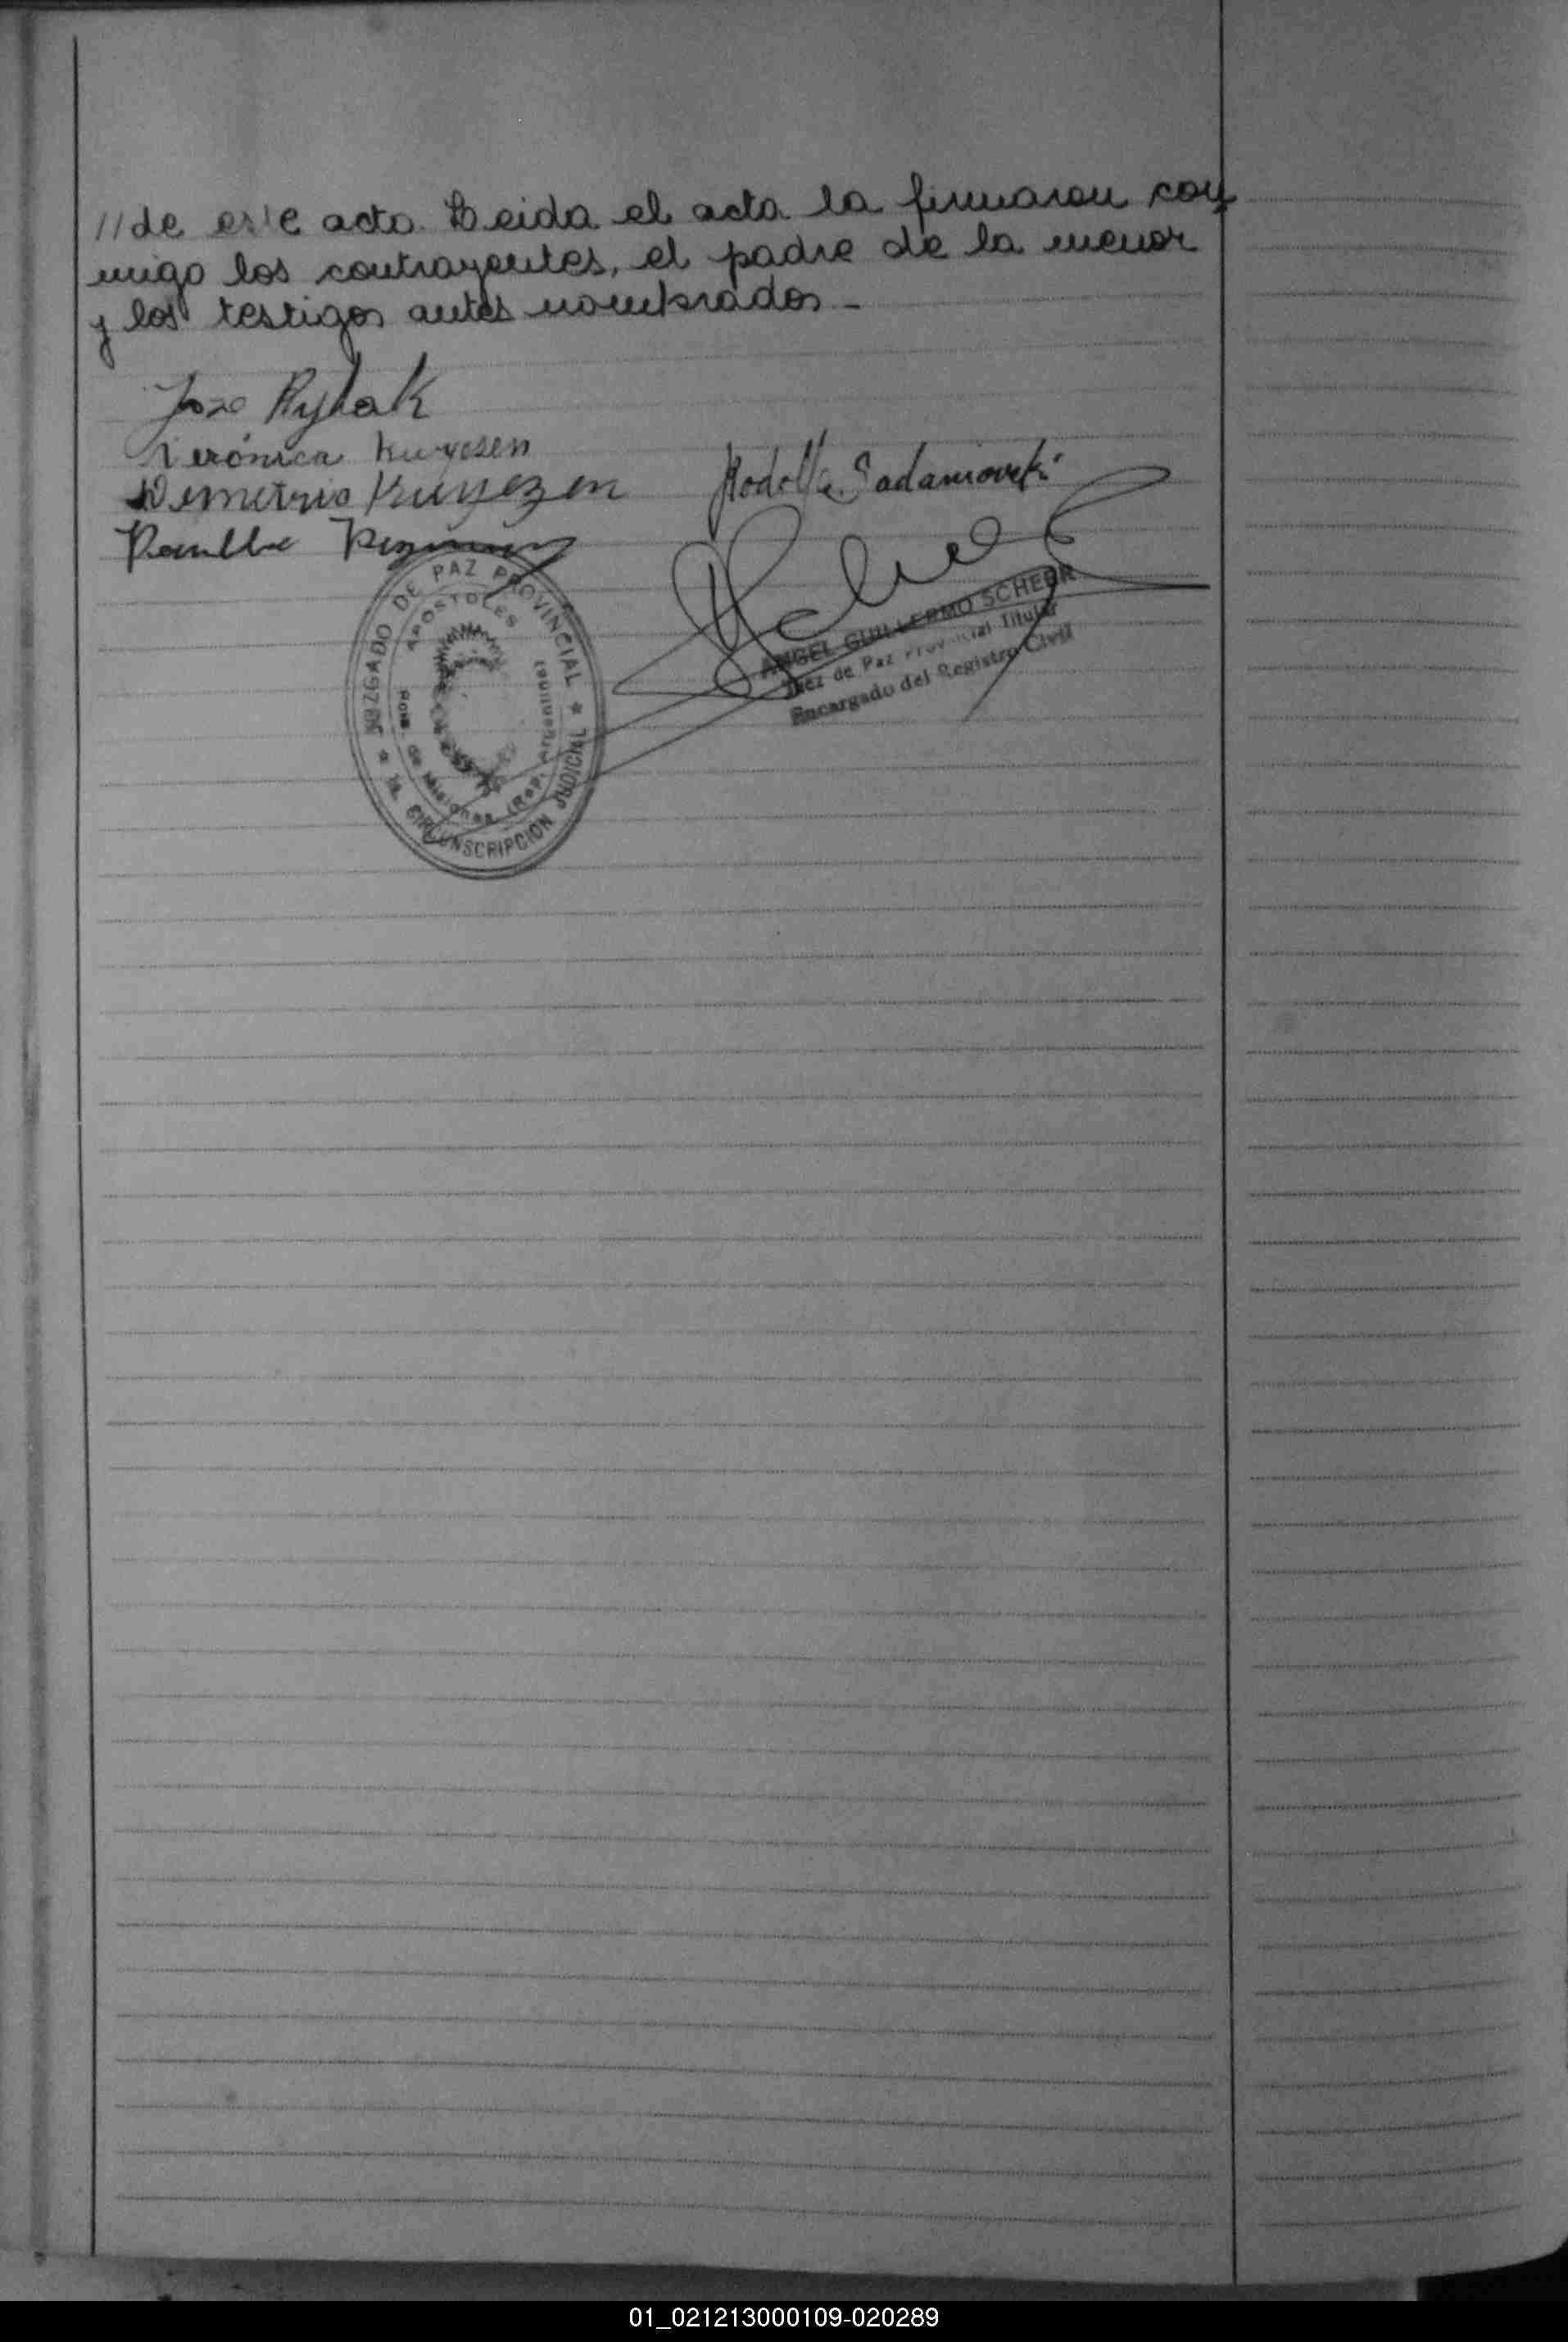 //de este acto. Leida el acta la firmaron con
migo los contrayentes, el padre de la menor
y los testigos antes nombrados_
Jose Rybak
Verónica Kuyesen
Demetrio Kuyezen Rodolfo Sadamoveki
JUZGADO DE PAZ PROVINCIAL
APOSTOLES
Pcia. de Misiones (Rep. Argentina)
1a. CIRCUNSCRIPCION JUDICIAL
ANGEL GUILLERMO SCHEER
Juez de Paz Provincial Titular
Encargado del Registro Civil
01_021213000109-020289